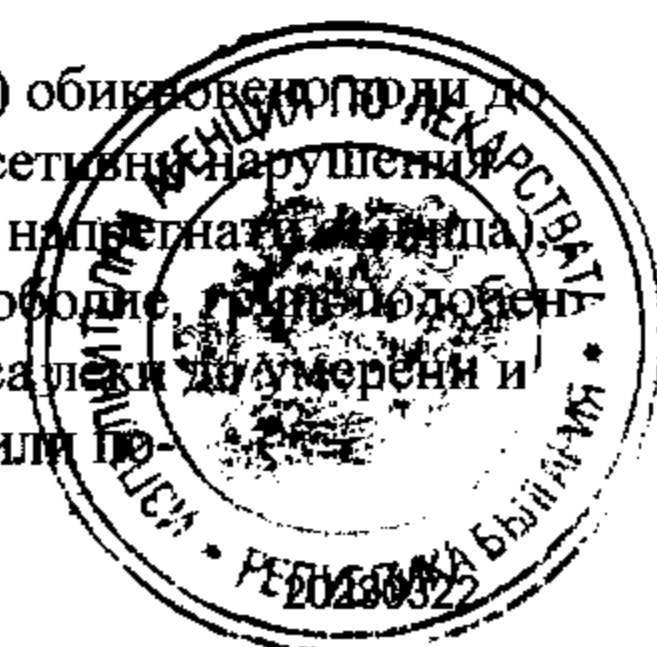 ) обикновено води до
сетивни нарушения
напрегнати
главоболие, грипоподобен
са леки до умерени и
или по-
ИЗПЪЛНИТЕЛНА АГЕНЦИЯ ПО ЛЕКАРСТВАТА
* РЕПУБЛИКА БЪЛГАРИЯ *